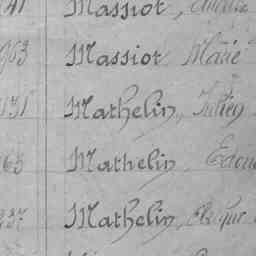 41 Massiot,
963 Massiot Marie
131 Mathelin, Julien
65 Mathelin,
237 Mathelin,